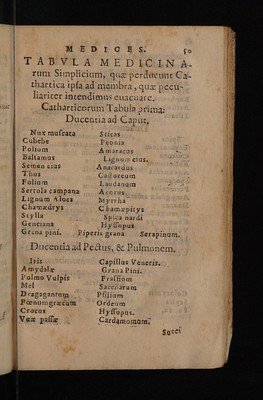 MEDICES. 50
TABVLA MEDICINA-
rum Simplicium, quæ perducunt Ca-
thartica ipsa ad membra, quæ pecu-
liariter intendimus euacuare.
Catharticorum Tabula prima:
Ducentia ad Caput.
Nux muscata Sticas
Cubebe Peonia
Polium Amaracus
Balsamus Lignum eius.
Semen eius Anacardus
Thus
Folium Laudanum
Sertula campana Acorus
Lignum Aloes Myrrha
Chamædrys Chamæpitys
Scylla Spica nardi
Genciana Hyssopus
Grana pini. Piperis grana Serapinum.
Ducentia ad Pectus, & Pulmonem.
Iris Capillus Veneris.
Amydalæ Grana Pini.
Pulmo Vulpis Prassium
Mel Saccharum
Dragagantum Psilium
Fœnumgræcum Ordeum
Crocus Hyssopus.
Vuæ passæ Cardamomum.
Succi